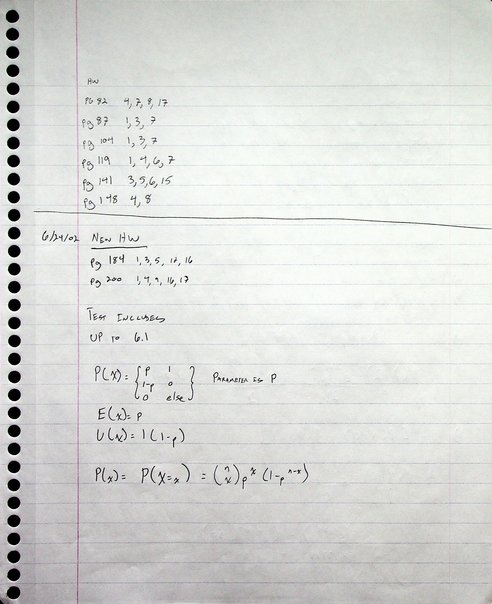 HW
PG 82 4, 7, 8, 17
pg 87 1, 3, 7
pg 104 1, 3, 7
pg 119 1, 4, 6, 7
pg 141 3, 5, 6, 15
pg 148 4, 8
6/24/02 NEW HW
pg 184 1, 3, 5, 12, 16
pg 200 1, 4, 9, 16, 17
TEST INCLUDES
UP TO 6.1
P(x) = { p 1
1-p 0
0 else } PARAMETER IS P
E(x) = p
V(x) = 1(1-p)
P(x) = P(X=x) = (n x) p^x (1-p^n-x)